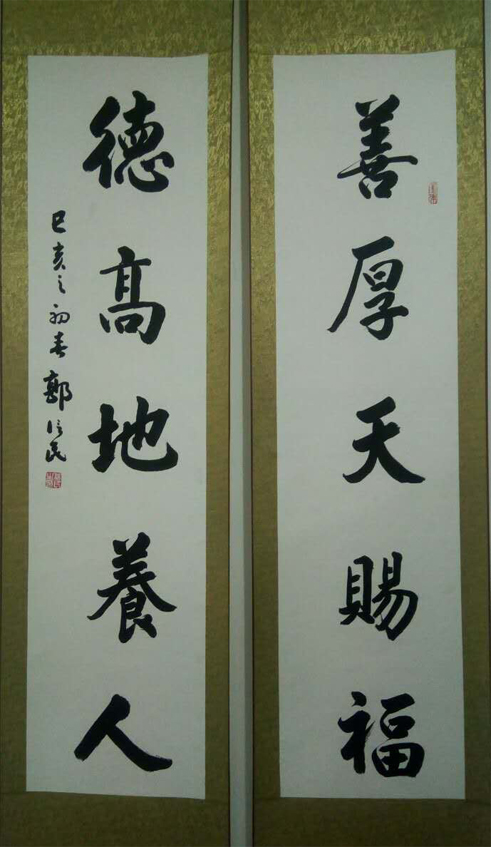 善厚天賜福
德高地養人
己亥之初春 鄭信民